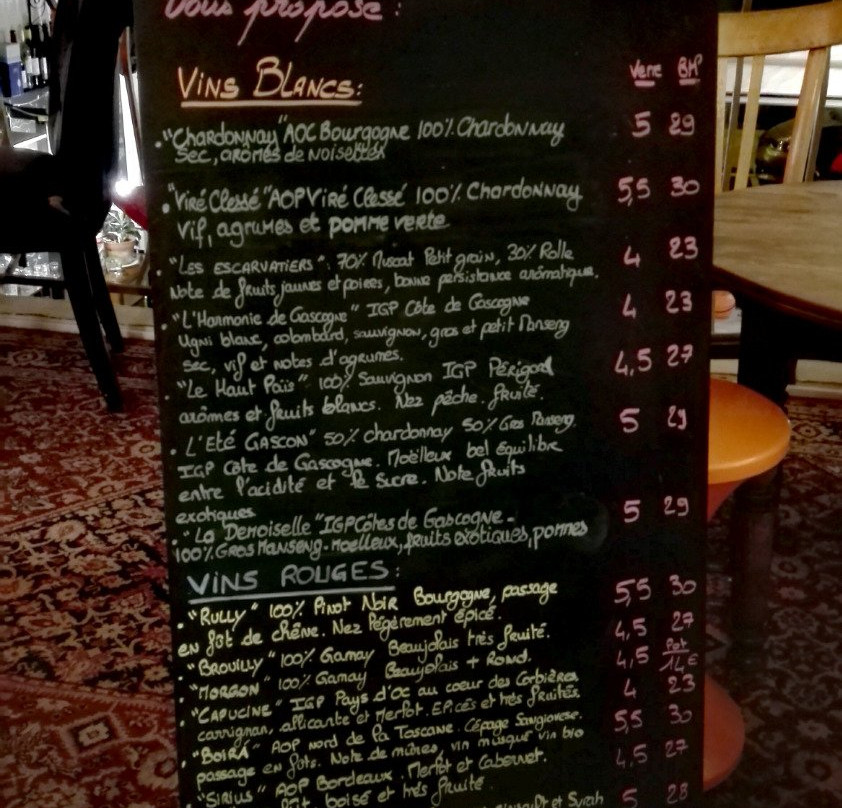 Vous propose :
Vins Blancs: Verre Btl
."Chardonnay" AOC Bourgogne 100% Chardonnay 5 29
Sec, arômes de noisettes
."Viré Clessé" AOP Viré Clessé 100% Chardonnay 5,5 30
Vif, agrumes et pomme verte
."Les escarvatiers": 70% Muscat Petit grain, 30% Rolle 4 23
Note de fruits jaunes et poires, bonne persistance arômatique.
."L'Harmonie de Gascogne" IGP Côte de Gascogne 4 23
Ugni blanc, colombard, sauvignon, gros et petit Manseng
sec, vif et notes d'agrumes.
."Le Haut Païs" 100% Sauvignon IGP Périgord 4,5 27
arômes et fruits blancs. Nez pêche. fruité.
. L'Eté Gascon" 50% chardonnay 50% Gros Manseng. 5 29
IGP Côte de Gascogne. Moëlleux bel équilibre
entre l'acidité et le sucre. Note fruits
exotiques
."La Demoiselle" IGP Côtes de Gascogne - 5 29
100% Gros Manseng-Moelleux, fruits exotiques, pommes
Vins Rouges:
."Rully" 100% Pinot Noir Bourgogne, passage 5,5 30
en fût de chêne. Nez légèrement épicé.
."Brouilly" 100% Gamay Beaujolais très fruité. 4,5 27
."Morgon" 100% Gamay Beaujolais + Rond. 4,5 Pot 14€
."Capucine" IGP Pays d'Oc au coeur des Corbières 4 23
carrignan, allicante et Merlot. Epicés et très fruités.
."Boirà" AOP nord de la Toscane. Cépage Sangiovese. 5,5 30
passage en fûts. Note de mûres, vin musqué vin bio
."Sirius" AOP Bordeaux. Merlot et Cabernet. 4,5 27
boisé et très fruité.
et Syrah 5 28